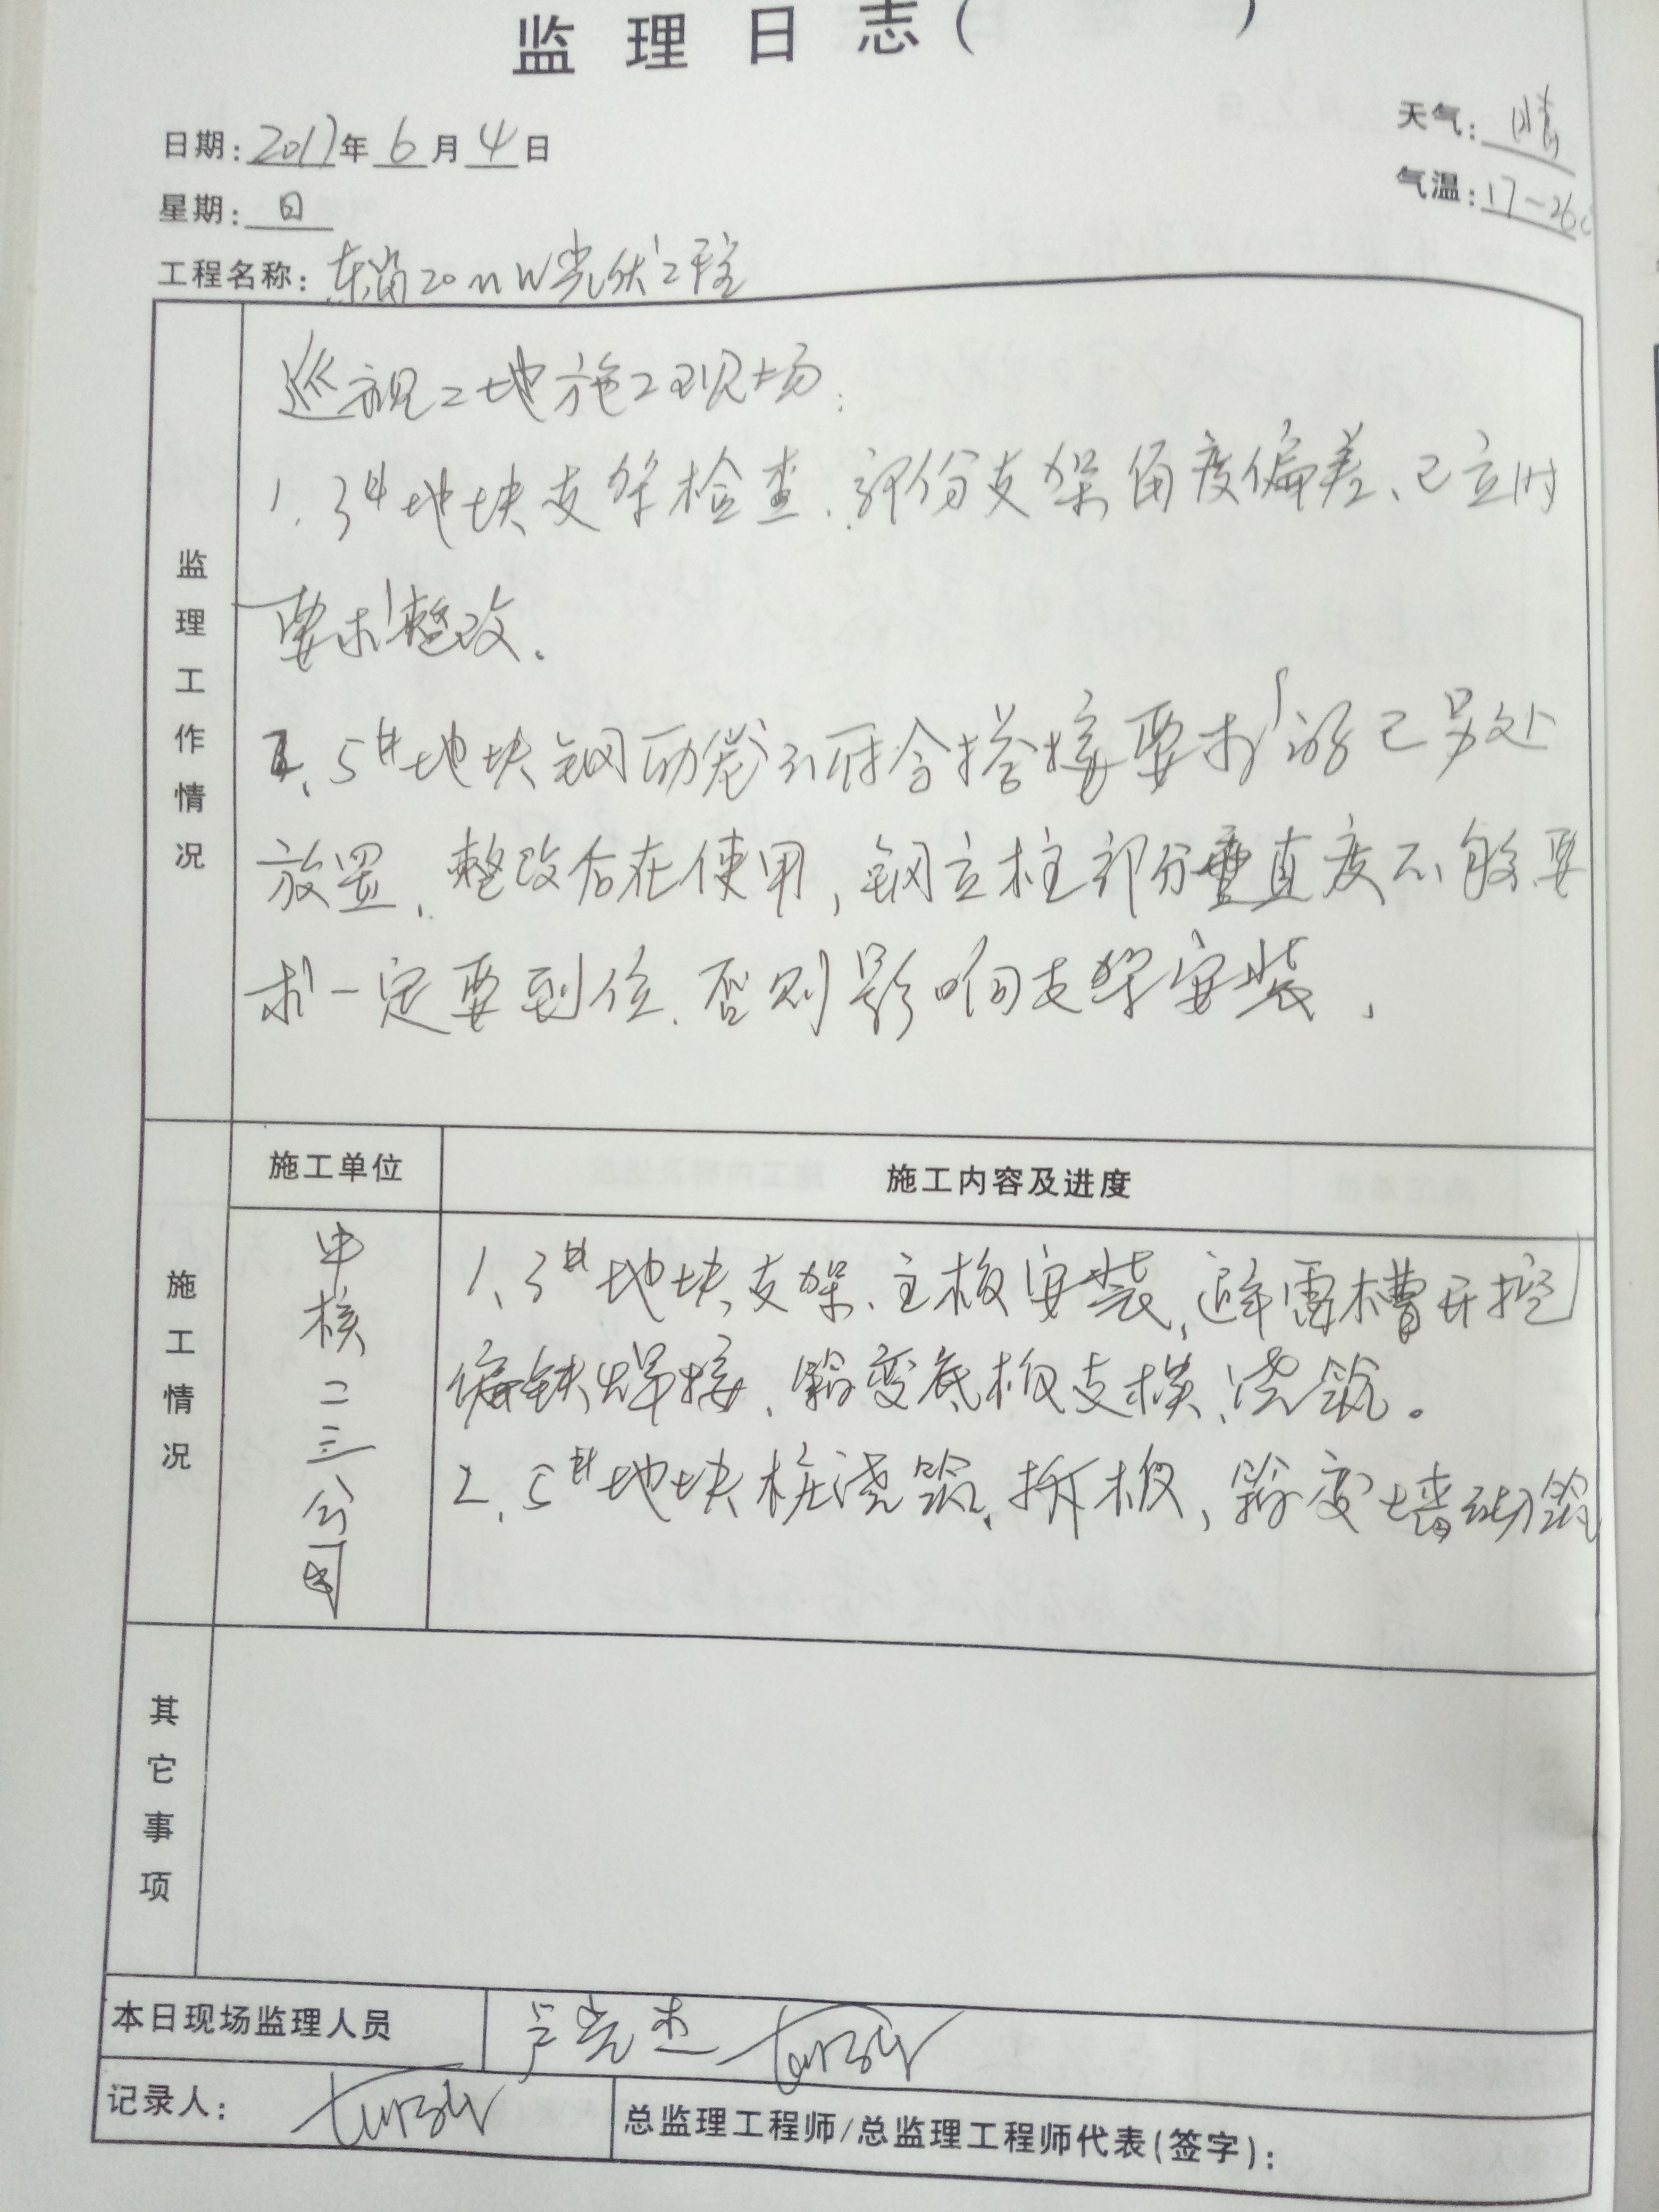 监理日志(          )
日期:2017年6月4日
天气:晴
星期:日
气温:17-26
工程名称:东 20MW光伏工程
巡视工地施工现场:
1.3#地块支架检查.部份支架角度偏差、已立时
要求整改.
2、5#地块钢筋笼不符合搭接要求 已另处
放置,整改后在使用,钢立柱部分垂直度不够要
求一定要到位.否则影响支架安装.
施工单位
施工内容及进度
中核二三公司
1、3#地块支架、主板安装,避雷槽开挖
偏铁焊接、箱变底板支模、浇筑。
2、5#地块桩浇筑、拆模,箱变墙砌筑
监理工作情况
施工情况
其它事项
本日现场监理人员
卢光杰
记录人:
总监理工程师/总监理工程师代表(签字):